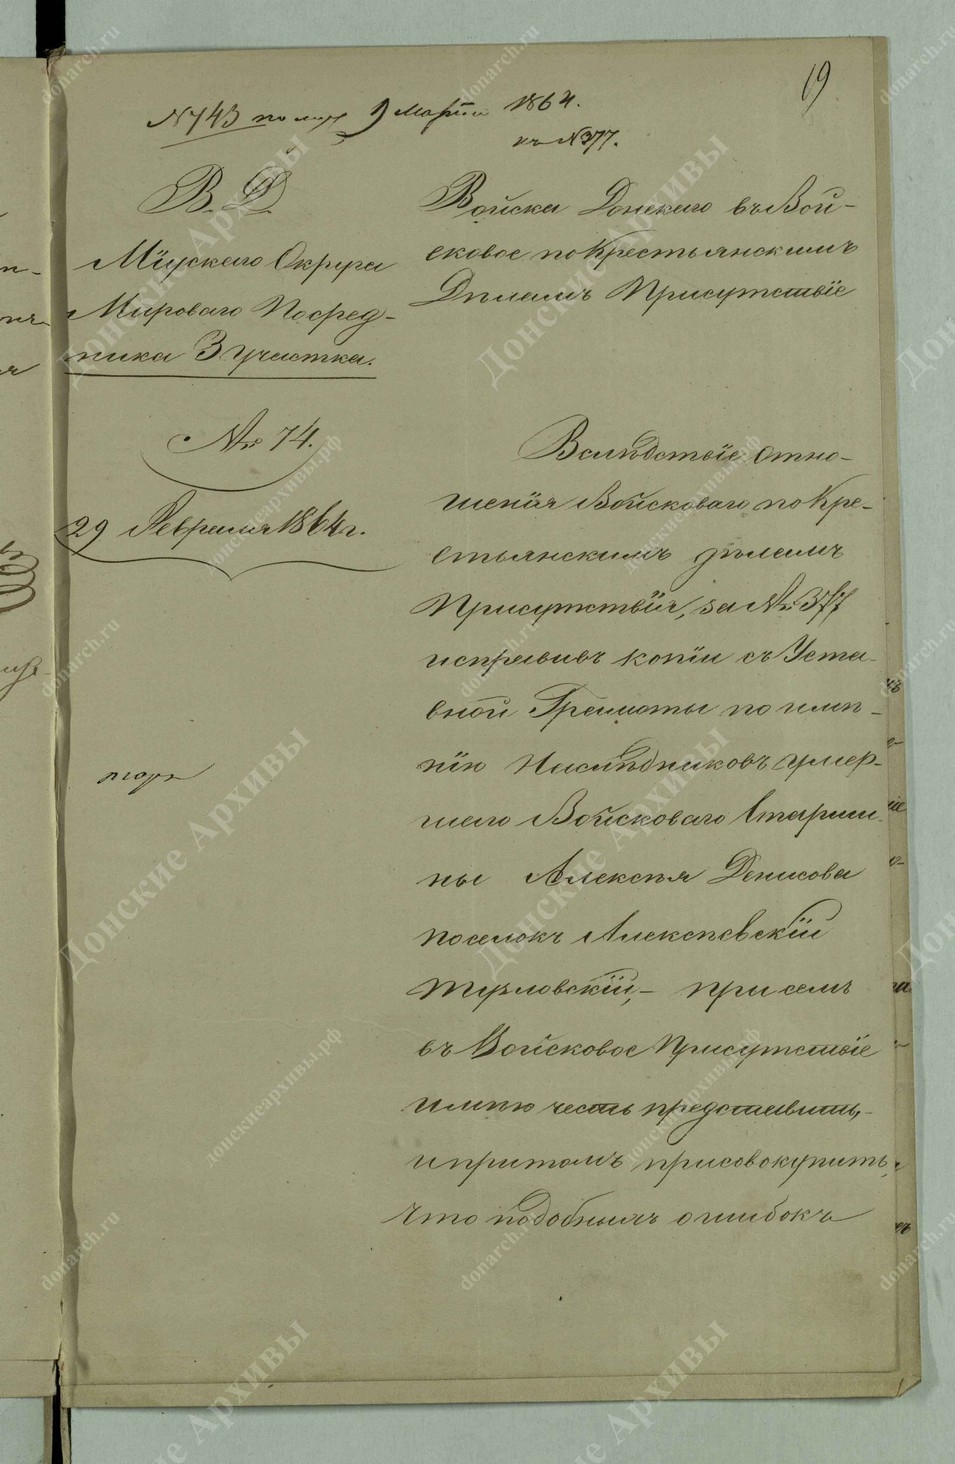 19
№ 743 получ 9 Марта 1864.
къ № 377.
В. Д.
Міускаго Округа
Мироваго Посред-
ника 3 Участка.
№ 74.
29 Февраля 1864 г.
Войска Донскаго въ Вой-
сковое по Крестьянскимъ
Дѣламъ Присутствіе
Вслѣдствіе отно-
шенія Войсковаго по Кре-
стьянскимъ дѣламъ
Присутствія, за № 377
исправивъ копіи съ Уста-
вной Грамоты по имѣ-
нію Наслѣдниковъ умер-
шаго Войсковаго Старши-
ны Алексѣя Денисова
поселокъ Алексѣевскій
Тузловскій,- при семъ
въ Войсковое Присутствіе
имѣю честь представить,-
и притомъ присовокупить,
что подобныхъ ошибокъ
Донские Архивы
донскиеархивы.рф
donarch.ru